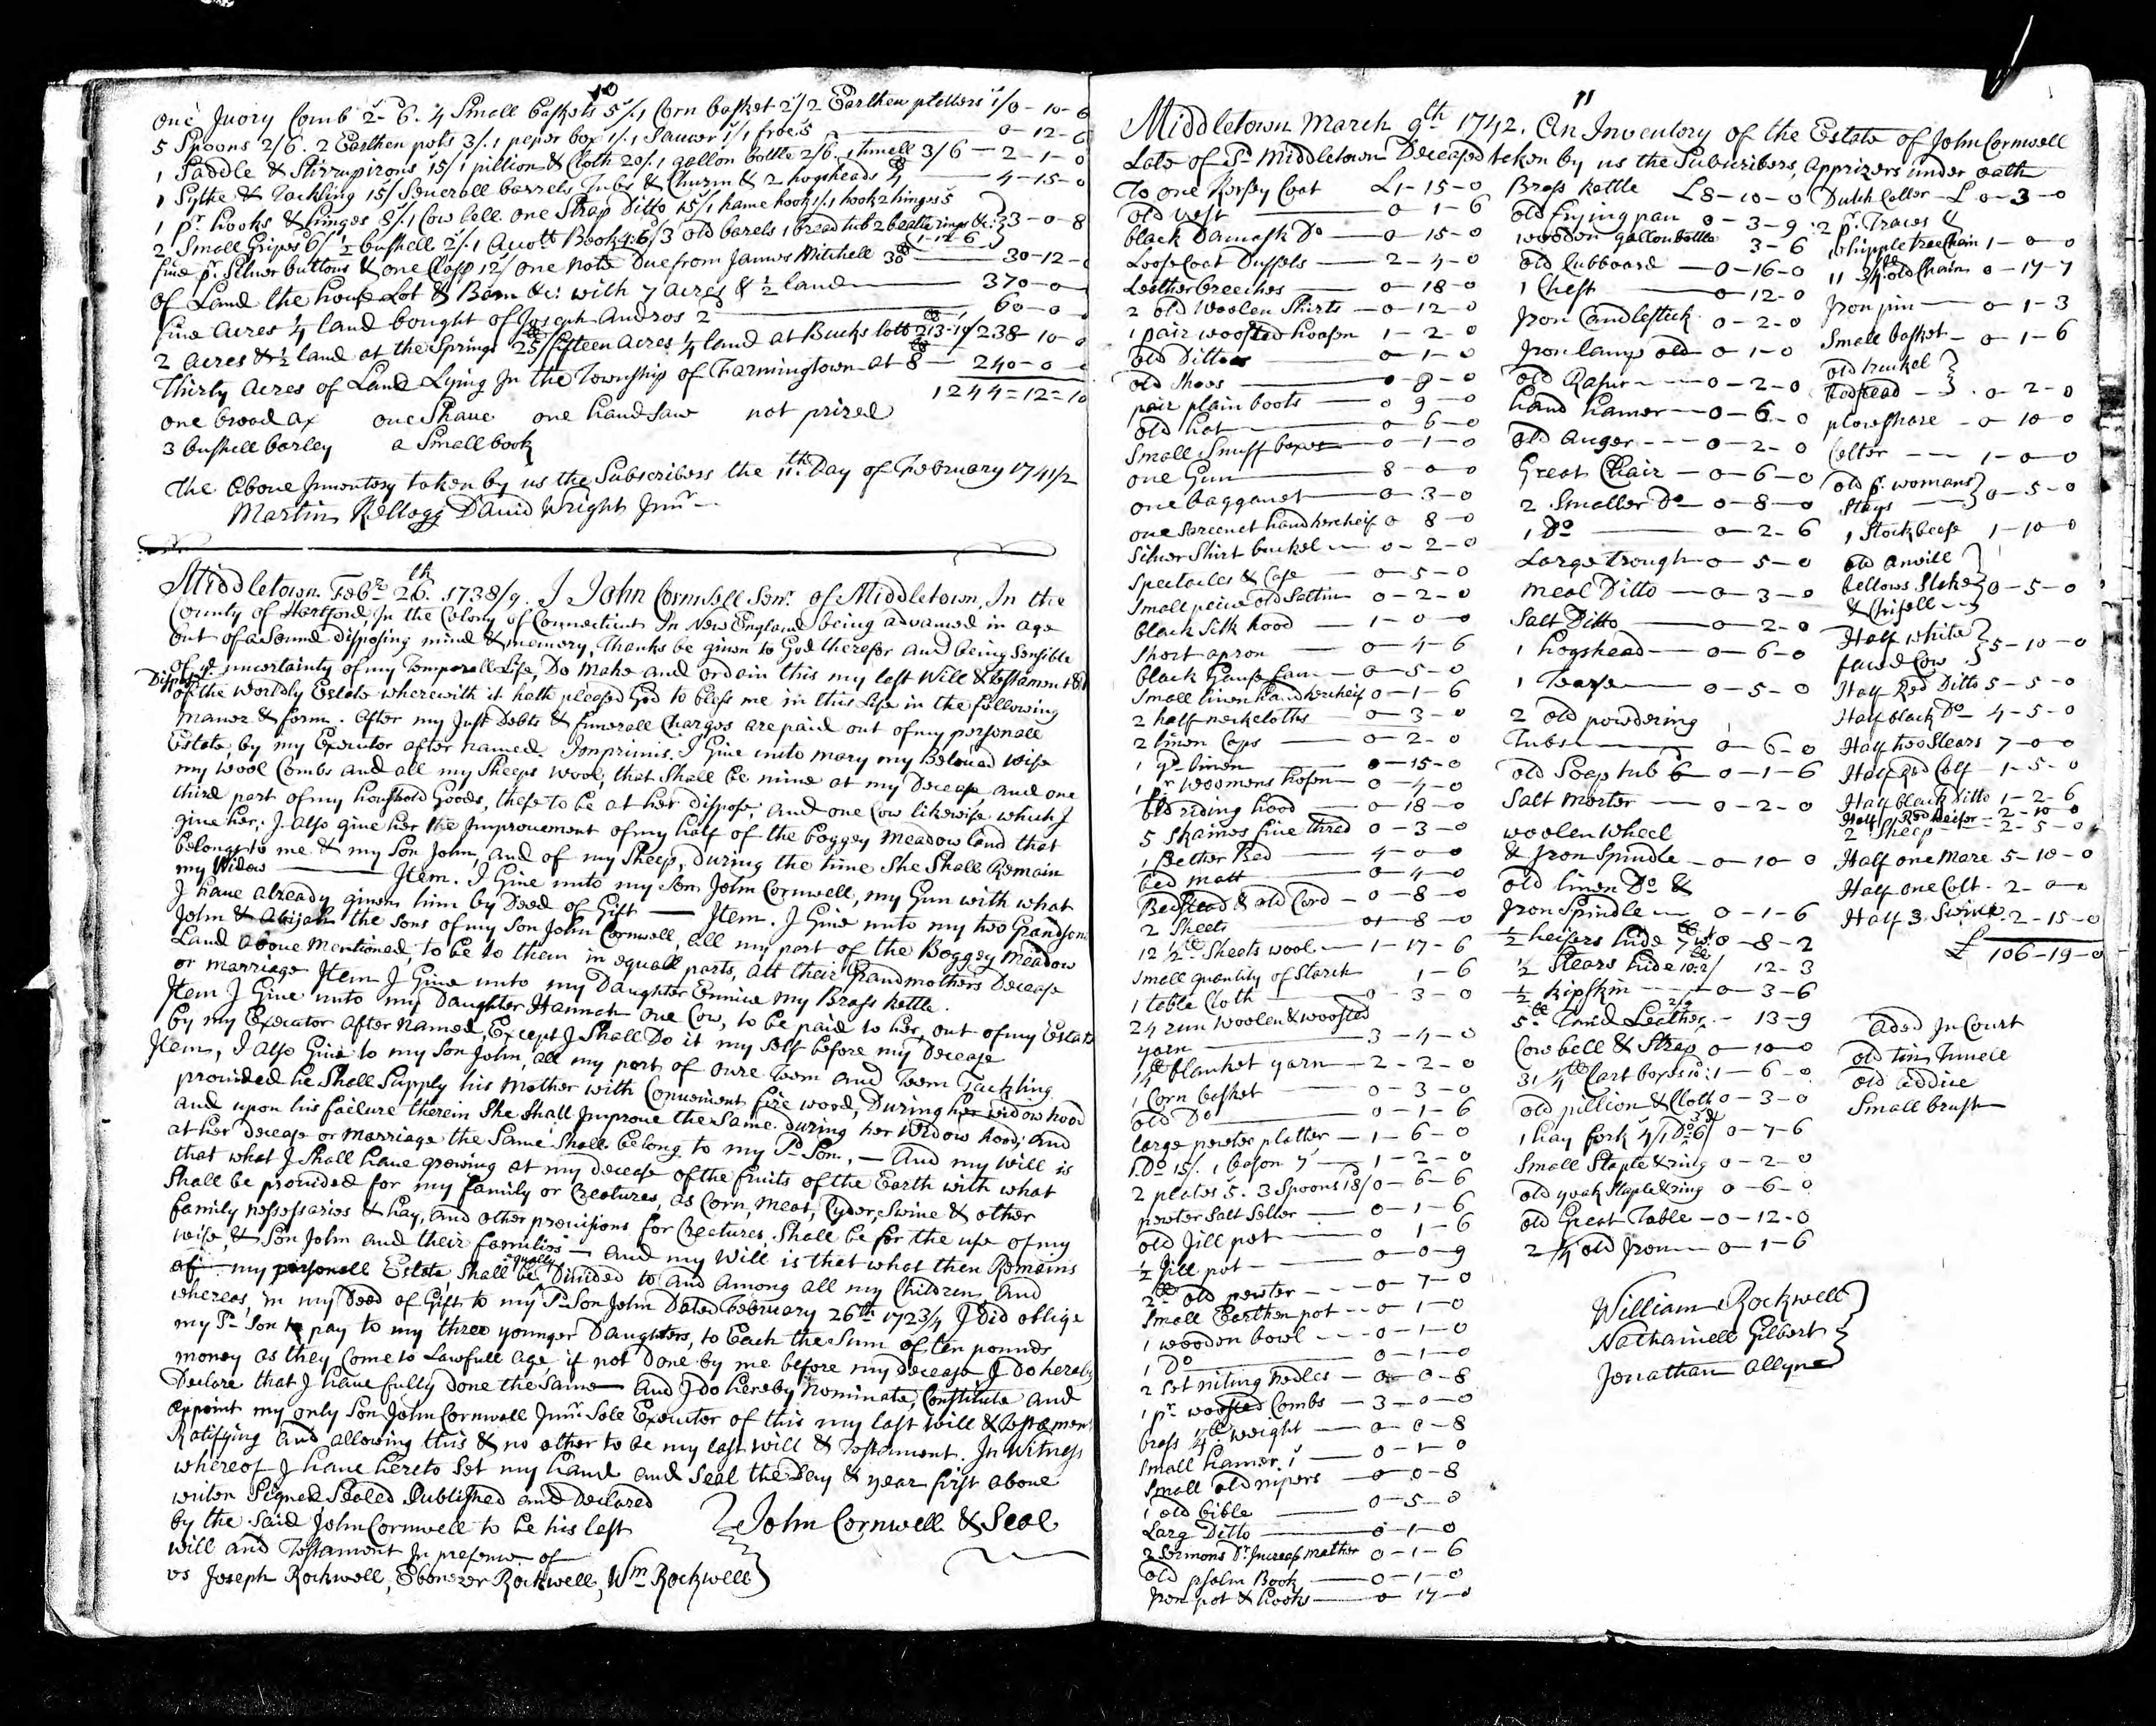 10
one Juory Comb 2-6. 4 Small baskets 5/. 1 Corn basket 2/ 2 Earthen platters 1/ 0-10-6
5 Spoons 2/6. 2 Earthen pots 3/. 1 peper box 1/. 1 Saucer 1/ 1 froe 5 — 0-12-6
1 Saddle & Stirrupirons 15/ 1 pillion & Cloth 20/. 1 gallon bottle 2/6. 1 tunell 3/6 — 2-1-0
1 Sythe & Tackling 15/ Seuerall barrels Tubs & Churm & 2 hogsheads 4 — 4-15-0
1 pr. hooks & hinges 8/. 1 Cow bell one Strap Ditto 15/ 1 hame hook 1/. 1 hook 2 hinges 5
2 Small Gripes 6/ ½ bushell 2/. 1 Acott Book 4:6/ 3 old barels 1 bread tub 2 beatle rings &c: 3-0-8
fiue pr. Siluer buttons & one Clasp 12/ one Note Due from James Mitchell 30 — 30-12-
of Land the house Lot & Barn &c: with 7 acres & ½ land — 370-0
fiue Acres ¼ land bought of Joseph Andros 2 — 60-0
2 Acres & ½ land at the Springs 25/ fifteen Acres ¼ land at Bucks lott 213-10/ 238-10-0
Thirty Acres of Land Lying In the Township of Farmingtown at 8 — 240-0
1244=12=10
one broad ax one Shaue one hand Saw not prized
3 bushell barley a Small book
The Aboue Inuentory taken by us the Subscribers the 11th. Day of February 1741/2
Martin Kellogg Dauid Wright Junr
Middletown. Febr. 26th. 1738/9. I John Cornwell Senr. of Middletown, In the
County of Hartford, In the Colony of Connecticut In New England being aduanced in age
but of a Sound Disposing mind & memory, Thanks be giuen to God therefor and being Sensible
of ye uncertainty of my Temporall Life, Do Make and ordain this my last Will & testament &
Dispose of the Worldly Estate wherewith it hath pleased God to bless me in this Life in the following
maner & form. After my Just Debts & funerall Charges are paid out of my personall
Estate, by my Executor after named. Imprimis. I Giue unto Mary my Beloued Wife
my wool Combs and all my Sheeps wool, that Shall be mine at my Decease and one
third part of my houshold Goods, these to be at her dispose, and one Cow likewise which I
giue her; I also giue her the Improuement of my half of the boggey meadow land that
belongs to me & my Son John, and of my Sheep, During the time She Shall Remain
my Widow — Item. I Giue unto my Son John Cornwell, my Gun with what
I haue already giuen him by Deed of Gift — Item. I Giue unto my two Grandsons
John & Abijah the Sons of my Son John Cornwell, all my part of the Boggey meadow
Land aboue Mentioned, to be to them in equall parts, att their Grandmothers Decease
or marriage Item I Giue unto my Daughter Eunice my Brass kettle.
Item I Giue unto my Daughter Hannah one Cow, to be paid to her, out of my Estate
by my Executor after Named, Except I Shall Do it my Self before my Decease
Item, I Also Giue to my Son John, all my part of oure Teem and Teem Tackling
prouided he Shall Supply his Mother with Conuenient fire wood, During her widowhood
and upon his failure therein She Shall Improue the Same. during her Widow hood; And
at her decease or marriage the Same Shall belong to my Sd Son, — And my Will is
that what I Shall haue growing at my decease of the fruits of the Earth with what
Shall be prouided for my family or Creatures, as Corn, Meat, Cyder, Swine & other
family nessessaries & hay, and other prouisions for Creatures, Shall be for the use of my
wife, & Son John and their families — And my Will is that what then Remains
of my personall Estate Shall be equally Diuided to and Among all my Children, And
whereas, in my Deed of Gift to my Sd Son John Dated February 26th 1723/4 I Did oblige
my Sd Son to pay to my three younger Daughters, to Each the Sum of ten pounds
money as they Come to Lawfull Age if not Done by me before my decease I do hereby
Declare that I haue fully done the Same And I do hereby Nominate, Constitute and
Appoint my only Son John Cornwell Junr. Sole Executor of this my last Will & Testament
Ratifying and allowing this & no other to be my last Will & Testament. In Witness
whereof I haue hereto Set my hand and Seal the Day & year first aboue
writen Signed, Sealed Published and Declared
by the Said John Cornwell to be his last
John Cornwell & Seal
Will and Testament In presence of
us Joseph Rockwell, Ebenezer Rockwell, Wm Rockwell
11
Middletown March 9th 1742. An Inventory of the Estate of John Cornwell
Late of Sd Middletown Deceasd taken by us the Subscribers, Apprizers under oath
To one Kersey Coat £1-15-0
old Vest — 0-1-6
black Damask Do — 0-15-0
Loose Coat Duffels — 2-4-0
Leather breeches — 0-18-0
2 old Woolen Shirts — 0-12-0
1 pair woosted hoasen 1-2-0
old Ditto — 0-1-0
old Shoes — 0-8-0
pair plain boots — 0 9-0
old hat — 0-6-0
Small Snuff boxes — 0-1-0
one Gun — 8-0-0
one bagganet — 0-3-0
one Screenet handkercheif 0 8-0
Siluer Shirt buckel — 0-2-0
Spectacles & Case — 0-5-0
Small peice old Sattin 0-2-0
black Silk hood — 1-0-0
Short apron — 0-4-6
black Gause fan — 0-5-0
Small linen handkercheif 0-1-6
2 half neckcloths 0-3-0
2 linen Caps — 0-2-0
1 yd linen — 0-15-0
1 pr Woomens hosen — 0-4-0
old riding hood — 0-18-0
5 Skaines fine thred 0-3-0
1 Fether Bed — 4-0-0
bed matt — 0-4-0
Bedstead & old Cord — 0-8-0
2 Sheets — 01-8-0
12 ½ lb Sheets wool — 1-17-6
Small quantity of Starch 1-6
1 table Cloth — 0-3-0
24 run Woolen & woosted
yarn — 3-4-0
14 lb blanket yarn — 2-2-0
1 Corn basket — 0-3-0
old Do — 0-1-6
large pewter platter — 1-6-0
1 Do 15/. 1 bason 7 — 1-2-0
2 plates 5. 3 Spoons 18/ 0-6-6
pewter Salt Seller — 0-1-6
old Jill pot — 0 1-6
½ Jill pot — 0-0-9
2 lb old pewter — 0-7-0
Small Earthen pot — 0-1-0
1 wooden bowl — 0-1-0
1 Do — 0-1-0
2 Set niting nedles — 0-0-8
1 pr. woosted Combs — 3-0-0
brass 4 lb weight — 0-0-8
Small hamer 1 — 0-1-0
Small old nipers — 0-0-8
1 old bible — 0-5-0
Larg Ditto — 0-1-0
2 Sermons Dr. Increas mather 0-1-6
old psalm Book — 0-1-0
Iron pot & hooks — 0 17-0
Brass kettle £8-10-0
old frying pan 0-3-9
wooden gallon bottle 3-6
old Cubboard — 0-16-0
1 Chest — 0-12-0
Iron Candlestick 0-2-0
Iron lamp old 0-1-0
old Rasur — 0-2-0
hand hamer — 0-6-0
old auger — 0-2-0
Great Chair — 0-6-0
2 Smaller Do — 0-8-0
1 Do — 0-2-6
Large trough — 0-5-0
meal Ditto — 0-3-0
Salt Ditto — 0-2-0
1 hogshead — 0-6-0
1 — 0-5-0
2 old powdering
Tubs — 0-6-0
old Soap tub 0-1-6
Salt Morter — 0-2-0
woolen Wheel
& Iron Spindle — 0-10 0
old linen Do &
Iron Spindle — 0-1-6
½ heifers hide 7 0-8-2
½ Stears hide 12-3
½ kipskin — 0-3-6
5 lb Tand Leather — 13-9
Cow bell & Strap 0-10-0
31 ¼ lb Cart boxes 1-6-0
old pillion & Cloth 0-3-0
1 hay fork 4/ 1 Do 0-7-6
Small Staple & ring 0-2-0
old yoak Staple & ring 0-6-0
old Great Table — 0-12-0
2 ¼ old Iron — 0-1-6
Dutch Coller — £0-3-0
2 pr. Traces &
whipple tree Chain 1-0-0
11 ¾ lb old Chain 0-17-7
Iron pin — 0-1-3
Small basket — 0-1-6
old truckel
bedstead — 0-2-0
plowshare — 0-10-0
Colter — 1-0-0
old pr. womans
Stays — 0-5-0
1 Stock bees 1-10-0
old Anvill
bellows Stake 0-5-0
& Chisell
Half white
faced Cow 5-10-0
Half Red Ditto 5-5-0
Half black Do 4-5-0
Half two Stears 7-0-0
Half Red Calf — 1-5-0
Half black Ditto 1-2-6
Half Red heifer — 2-10-0
2 Sheep — 2-5-0
Half one Mare 5-10-0
Half one Colt. 2-0-0
Half 3 Swine 2-15-0
£ 106-19-0
Aded In Court
old tin Tunell
old addice
Small brush
William Rockwell
Nathaniell Gilbert
Jonathan Allyne